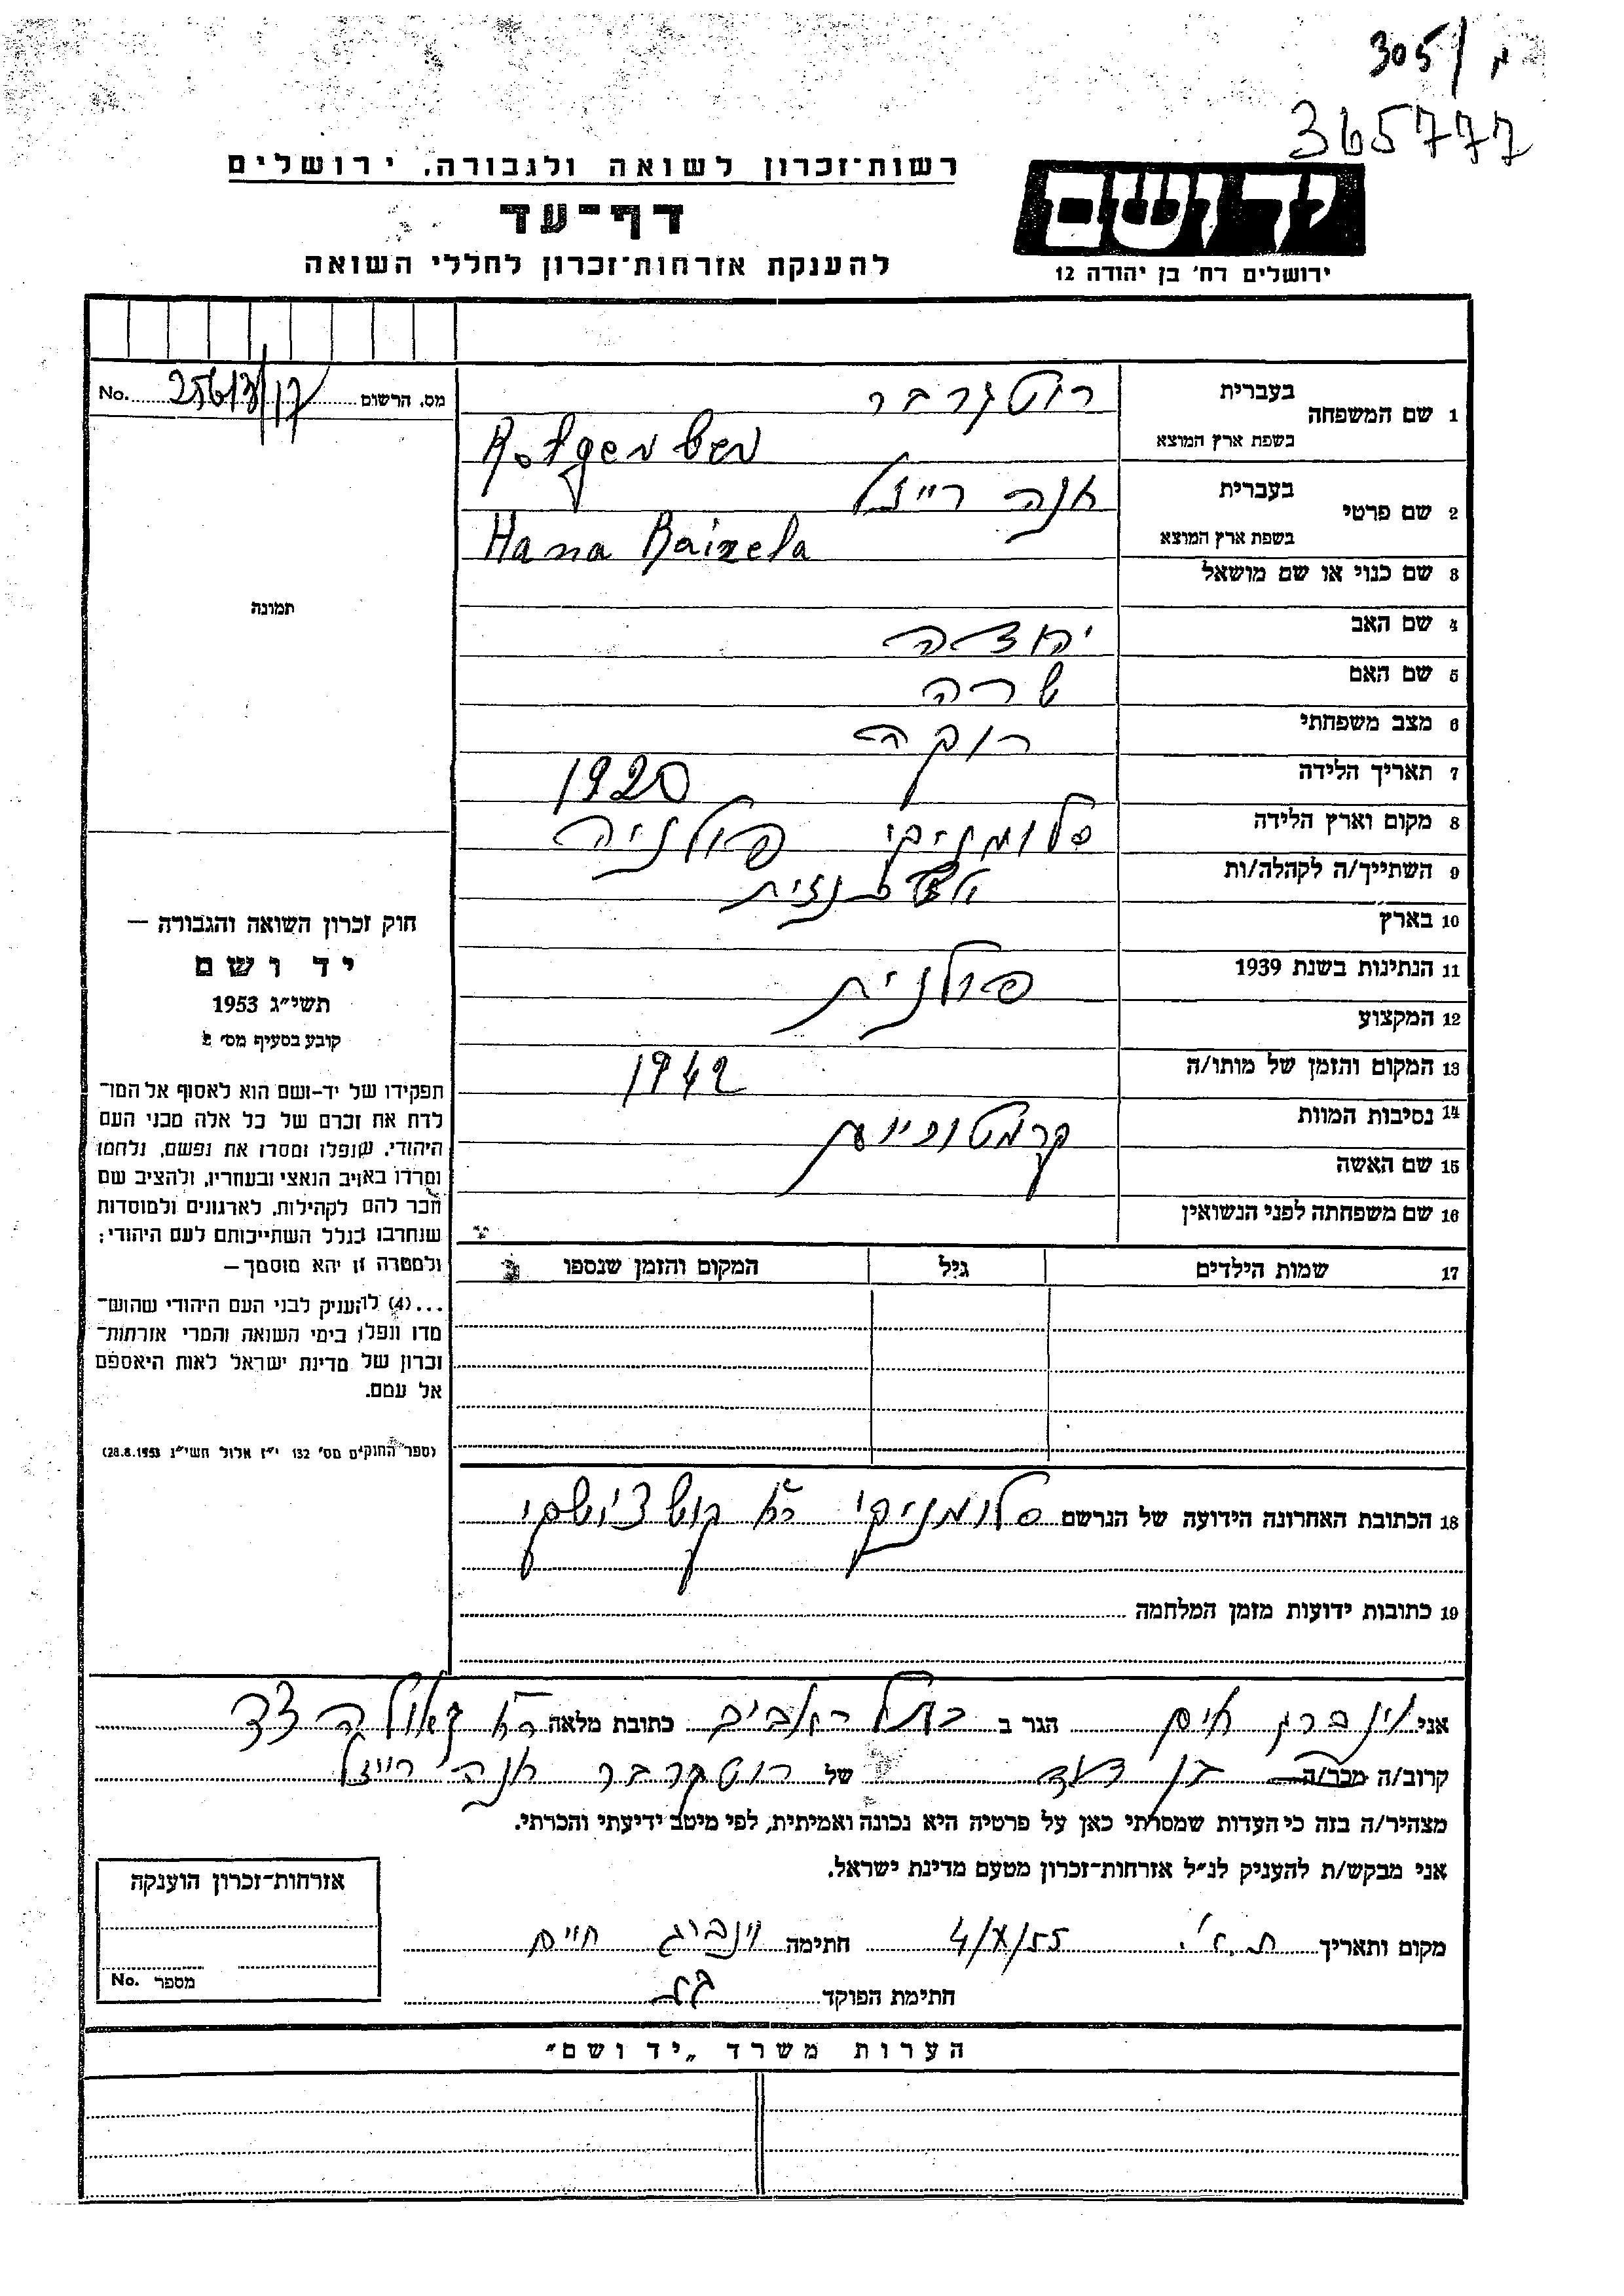 305/מ
365777
רשות־זכרון לשואה ולגבורה. ירושלים
דף־עד
להענקת אזרחות־זכרון לחללי השואה
יד ושם
ירושלים רח' בן יהודה 12
מס. הרשום No.
1 שם המשפחה בעברית רוטגרבר
בשפת ארץ המוצא Rotgerber
2 שם פרטי בעברית אנה רייזל
בשפת ארץ המוצא Hana Raizela
3 שם כנוי או שם מושאל
תמונה
4 שם האב יהודה
5 שם האם שרה
6 מצב משפחתי רוקה
7 תאריך הלידה 1920
8 מקום וארץ הלידה סלומניקי פולניה
9 השתייך/ה לקהלה/ות
10 בארץ
11 הנתינות בשנת 1939 פולנית
12 המקצוע
13 המקום והזמן של מותו/ה 1942
14 נסיבות המוות
15 שם האשה
16 שם משפחתה לפני הנשואין
17 שמות הילדים גיל המקום והזמן שנספו
חוק זכרון השואה והגבורה –
יד ושם
תשי״ג 1953
קובע בסעיף מס׳ 2
תפקידו של יד-ושם הוא לאסוף אל המו־
לדת את זכרם של כל אלה מבני העם
היהודי, שנפלו ומסרו את נפשם, נלחמו
ומרדו באויב הנאצי ובעוזריו, ולהציב שם
וזכר להם לקהילות, לארגונים ולמוסדות
שנחרבו בגלל השתייכותם לעם היהודי;
ולמטרה זו יהא מוסמך –
...(4) להעניק לבני העם היהודי שהוש־
מדו ונפלו בימי השואה והמרי אזרחות־
זכרון של מדינת ישראל לאות היאספם
אל עמם.
(ספר החוקים מס׳ 132 י״ז אלול תשי״ג 28.8.1953)
18 הכתובת האחרונה הידועה של הנרשם סלומניקי רח'
19 כתובות ידועות מזמן המלחמה
אני וינברג חיים הגר ב בתל אביב כתובת מלאה רח' גאולה
קרוב/ה מכר/ה בן דוד של רוטגרבר אנה רייזל
מצהיר/ה בזה כי העדות שמסרתי כאן על פרטיה היא נכונה ואמיתית, לפי מיטב ידיעתי והכרתי.
אני מבקש/ת להעניק לנ״ל אזרחות־זכרון מטעם מדינת ישראל.
מקום ותאריך ת.א. 4/X/55 חתימה וינברג חיים
חתימת הפוקד
אזרחות־זכרון הוענקה
מספר No.
הערות משרד „יד ושם״